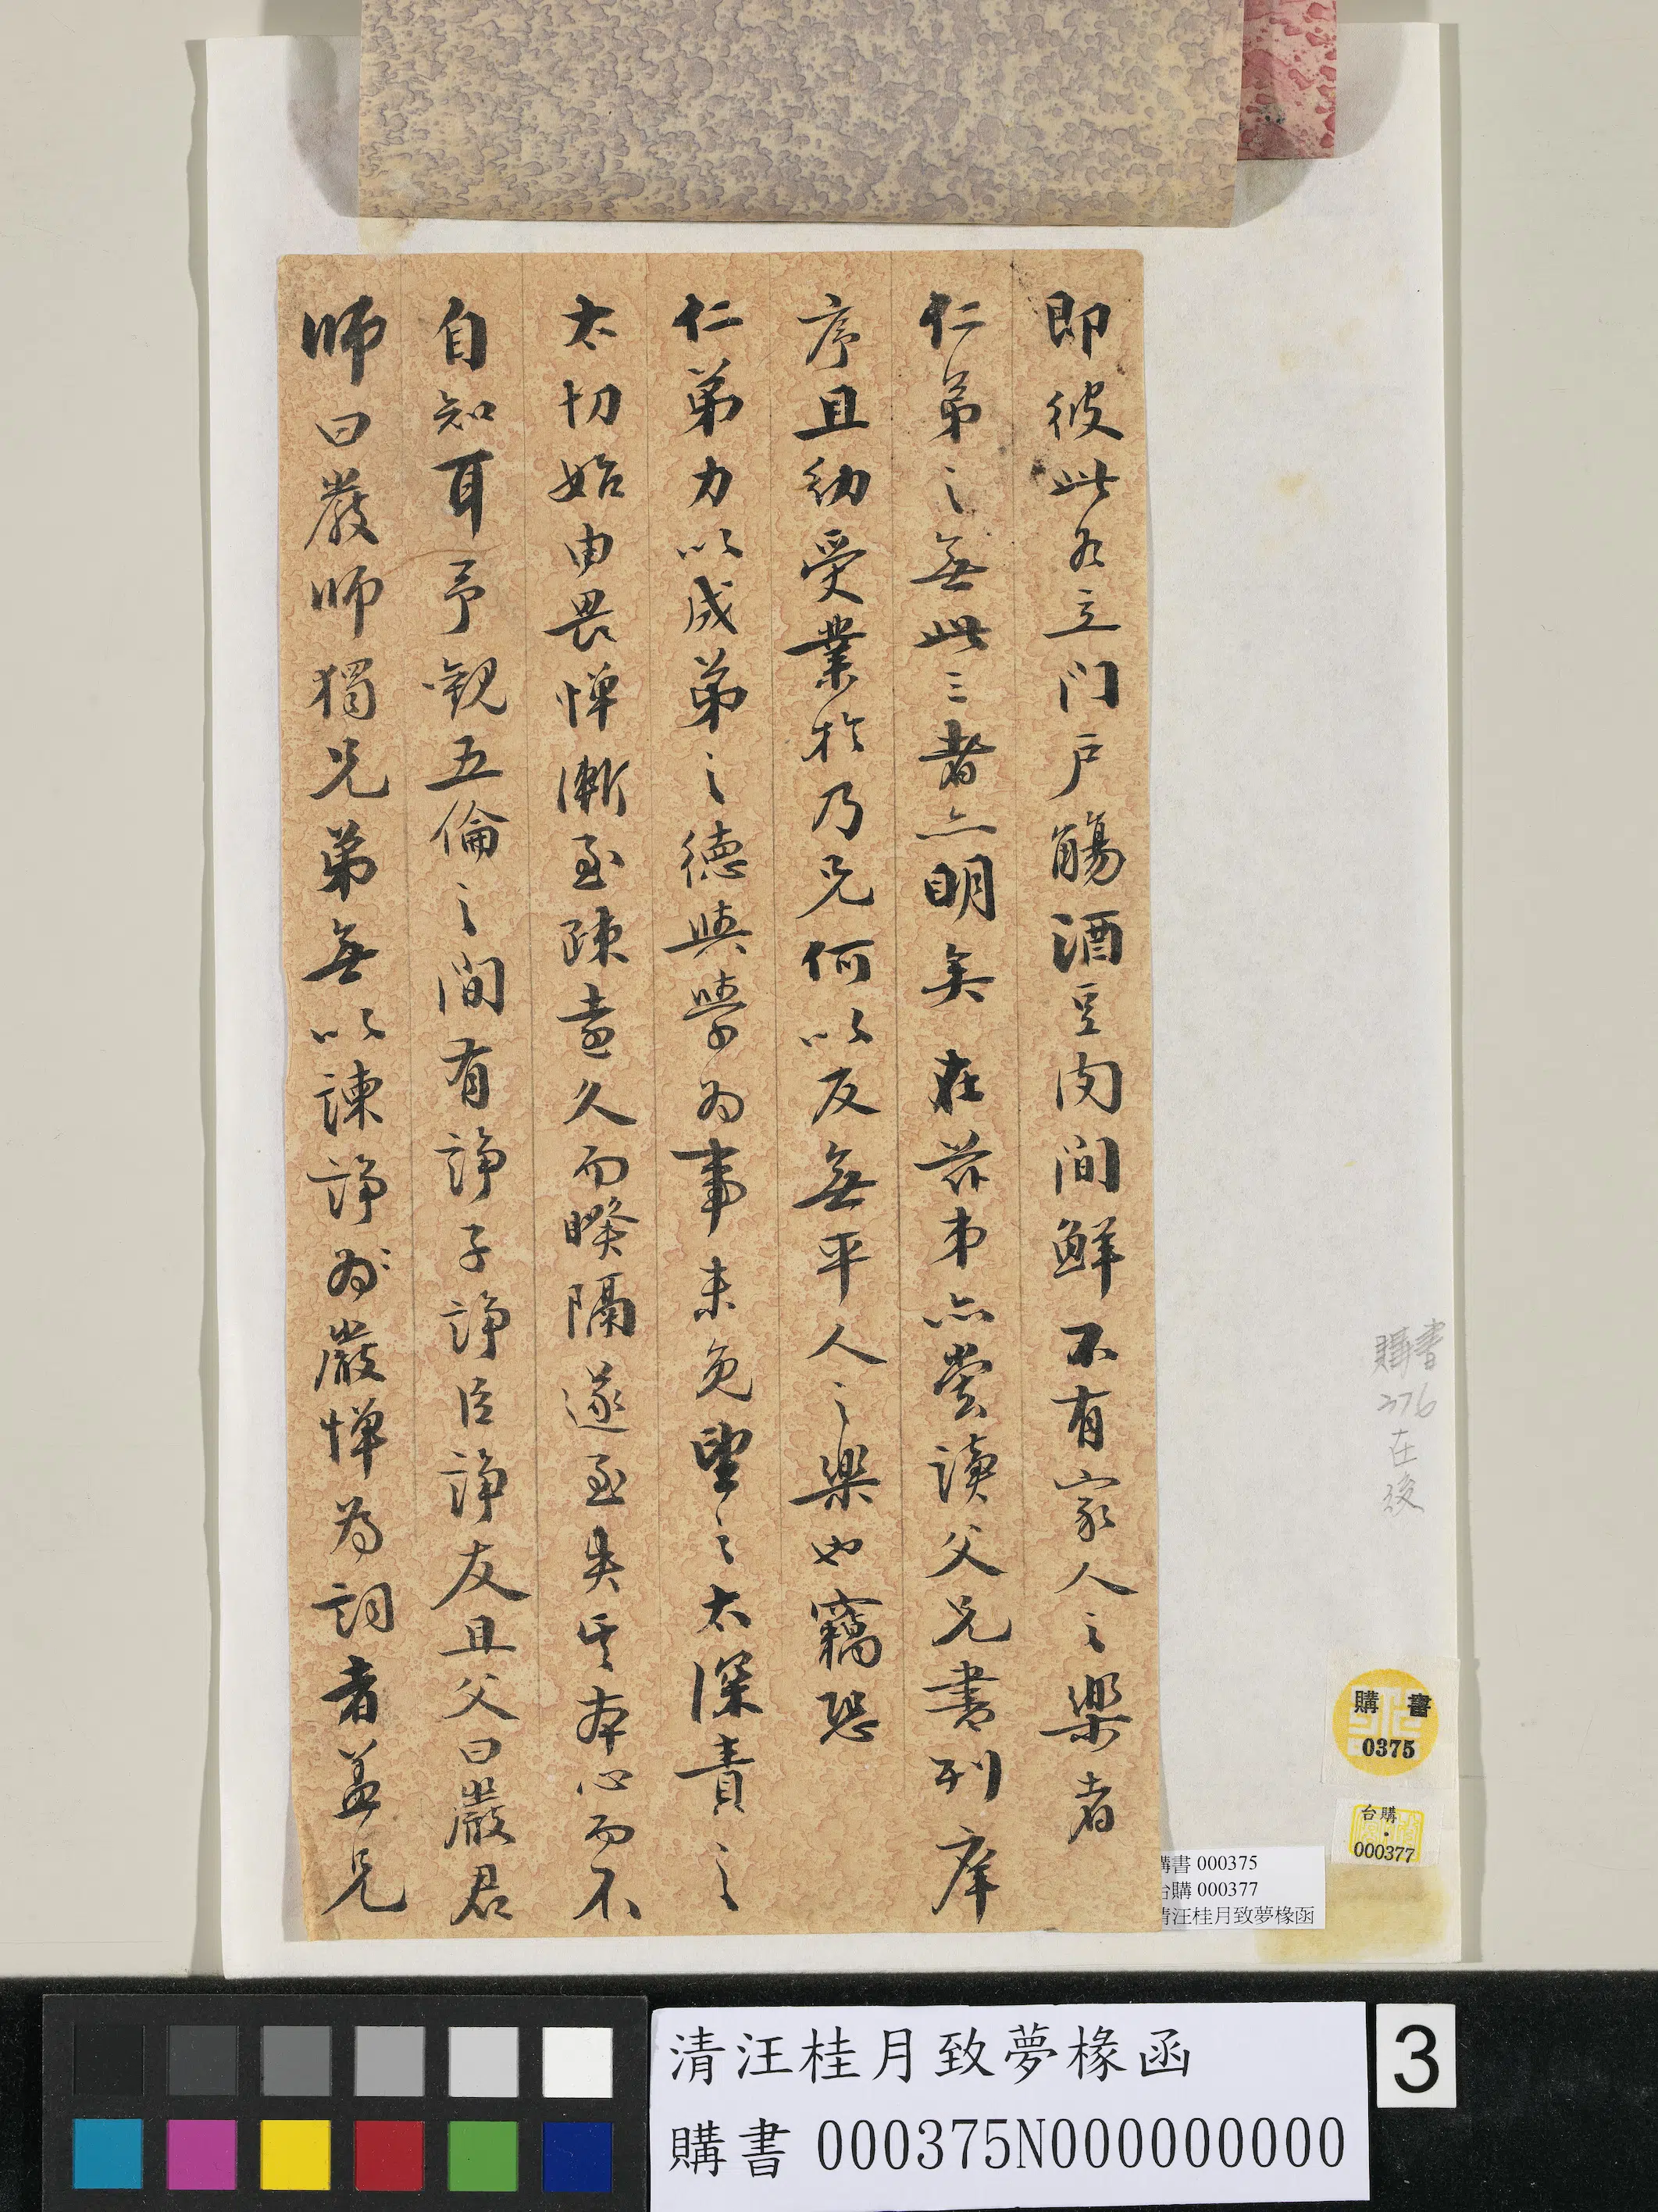 即彼此各立门户觴酒豆肉間鮮不有家人之樂者
仁弟之無此三者亦明矣在茲弟亦嘗讀父兄書列庠
序且幼受業於乃兄何以反無平人之樂也竊恐
仁弟力以成弟之德與學為事未免望之太深責之
太切始由畏惮漸至疎遠久而暌隔遂至失其本心而不
自知耳予觀五倫之間有諍子諍臣諍友且父曰嚴君
师曰嚴师獨兄弟無以諫諍於嚴惮為詞者盖兄
購書
376
在
後
購 書
0375
台購
000377
購書 000375
台購 000377
清汪桂月致夢椽函
清汪桂月致夢椽函
購書 000375N000000000
3